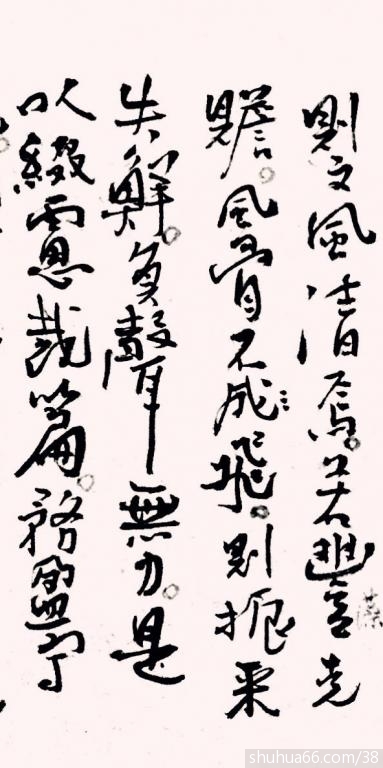 則文風清焉。若豐藻克
贍。風骨不成飛。則振采
失鮮。負聲無力。是
以綴慮裁篇。務盈守
shuhua66.com/38